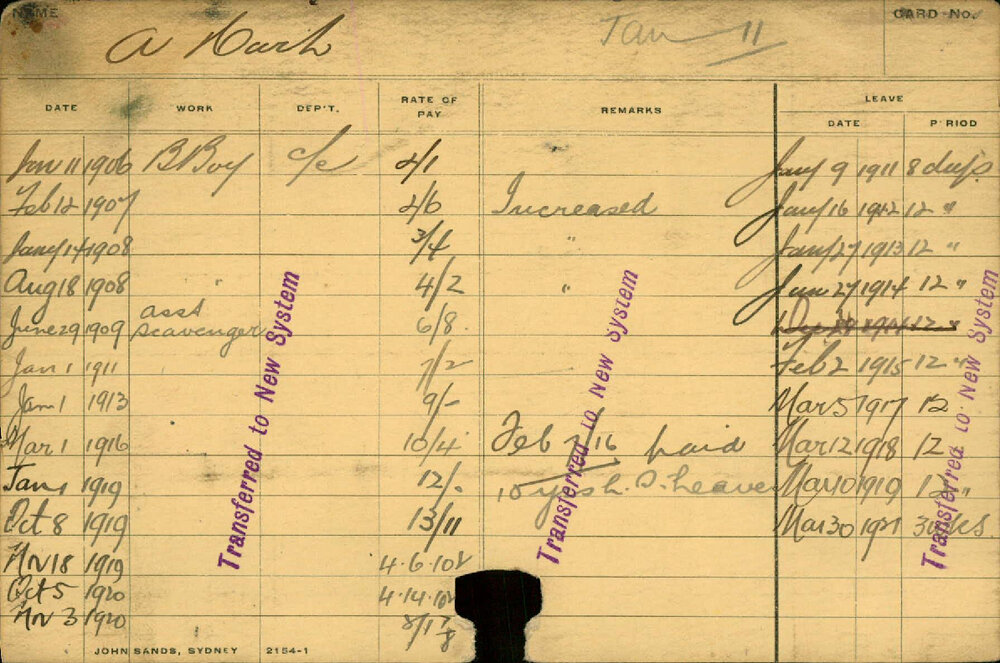 NAME
CARD No.
A
Jan 11
DATE WORK DEP'T. RATE OF PAY REMARKS LEAVE
DATE PERIOD
Jan 11 1906 B Boy c/c 2/1 Jany 9 1911 8 days
Feb 12 1907 2/6 Increased Jany 16 1912 12 "
Jany 14 1908 3/4 " Jany 27 1913 12 "
Aug 18 1908 " 4/2 " Jan 27 1914 12 "
June 29 1909 asst scavenger 6/8 1914 12 "
Jan 1 1911 7/2 Feb 2 1915 12 "
Jan 1 1913 9/- Mar 5 1917 12
Mar 1 1916 10/4 Feb /16 paid Mar 12 1918 12
Jan 1 1919 12/- 10 yrs L. S. Leave Mar 10 1919 12 "
Oct 8 1919 13/11 Mar 30 1921 3 wks
Nov 18 1919 4.6.10½
Oct 5 1920 4.14.10½
Nov 3 1920
Transferred to New System
Transferred to New System
Transferred to New System
JOHN SANDS, SYDNEY 2154-1